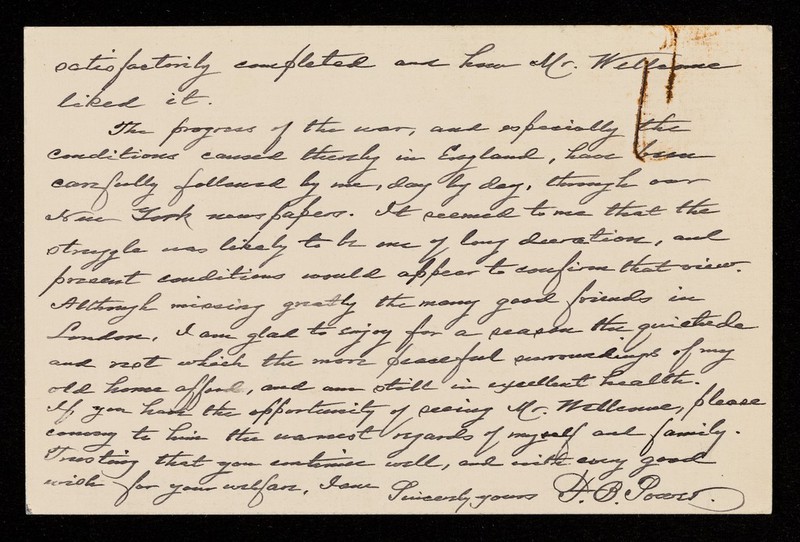 satisfactorily completed and how Mr. Wellcome
liked it.
The progress of the war, and especially the
conditions caused thereby in England, have been
carefully followed by me, day by day, through our
New York newspapers. It seemed to me that the
struggle was likely to be one of long duration, and
present conditions would appear to confirm that view.
Although missing greatly the many good friends in
London, I am glad to enjoy for a season the quietude
and rest which the more peaceful surroundings of my
old home afford, and am still in excellent health.
If you have the opportunity of seeing Mr. Wellcome, please
convey to him the warmest regards of myself and family.
Trusting that you continue well, and with every good
wish for your welfare, I am Sincerely yours F. B. Power.